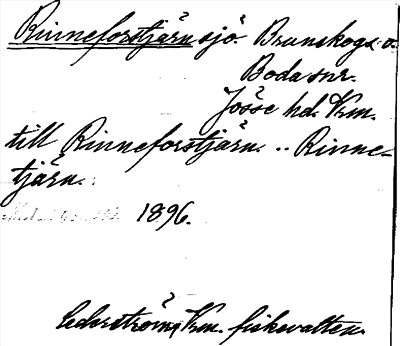 Rinneforstjärn sjö. Brunskogs o.
Boda snr.
Jösse hd. Vrm.
till Rinneforstjärn. .. Rinne-
tjärn.
1896.
Cederström, Vrm. fiskevatten.